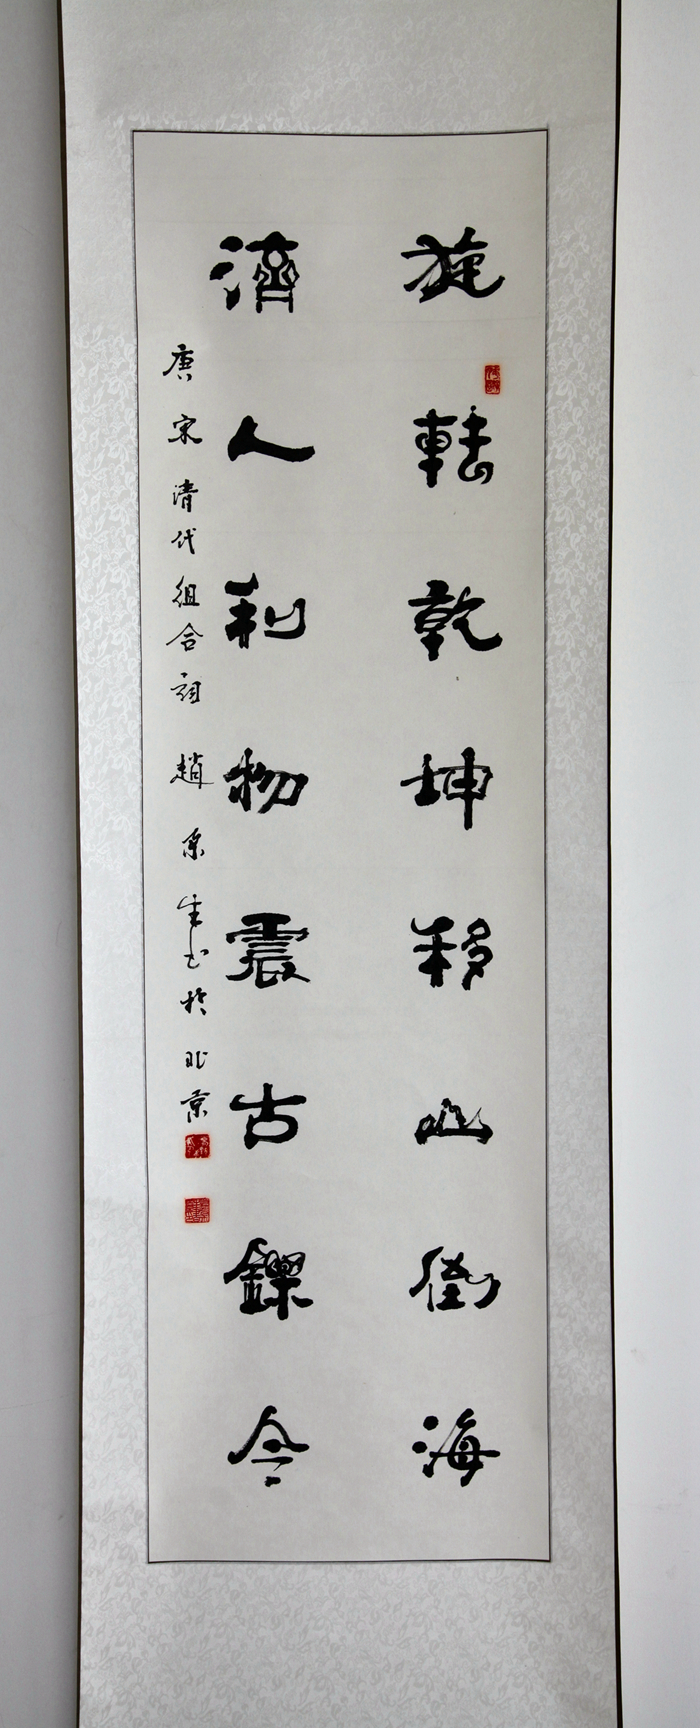 旋轉乾坤移山倒海
濟人利物震古鑠今
唐宋清代組合詞 趙京生书於北京